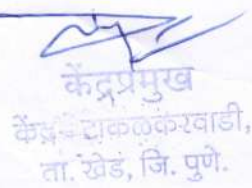 केंद्रप्रमुख
केंद्र - टाकळकरवाडी,
ता. खेड, जि. पुणे.